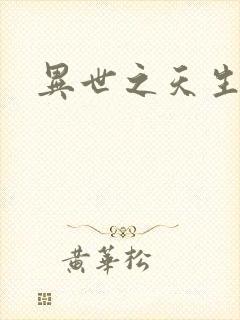 異世之天生
黄華松